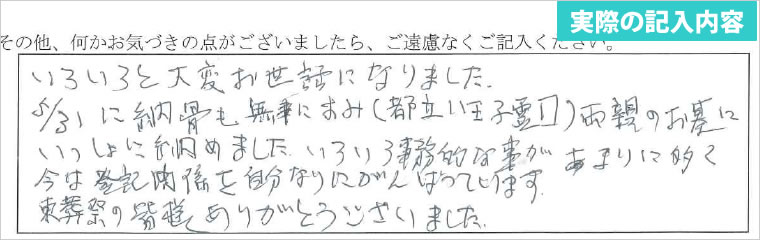 実際の記入内容
その他、何かお気づきの点がございましたら、ご遠慮なくご記入ください。
いろいろと大変お世話になりました。
5/31に納骨も無事にすみ(都立八王子霊園)両親のお墓に
いっしょに納めました。いろいろ事務的な事があまりに多く
今は登記関係を自分なりにがんばっています。
東葬祭の皆様ありがとうございました。